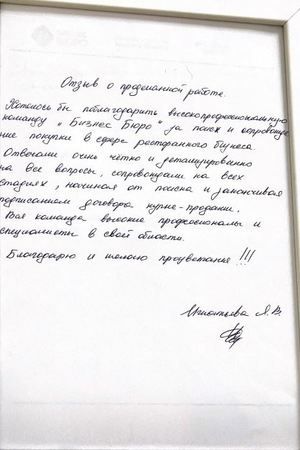 Отзыв о проделанной работе.
Хотелось бы поблагодарить высокопрофессиональную
команду „Бизнес Бюро" за поиск и сопровожде
ние покупки в сфере ресторанного бизнеса.
Отвечали очень чётко и детализированно
на все вопросы, сопровождали на всех
стадиях, начиная от поиска и заканчивая
подписанием договора купле-продажи.
Вся команда высокие профессионалы и
специалисты в свой области.
Благодарю и желаю процветания!!!
Игнатьева Л.В.